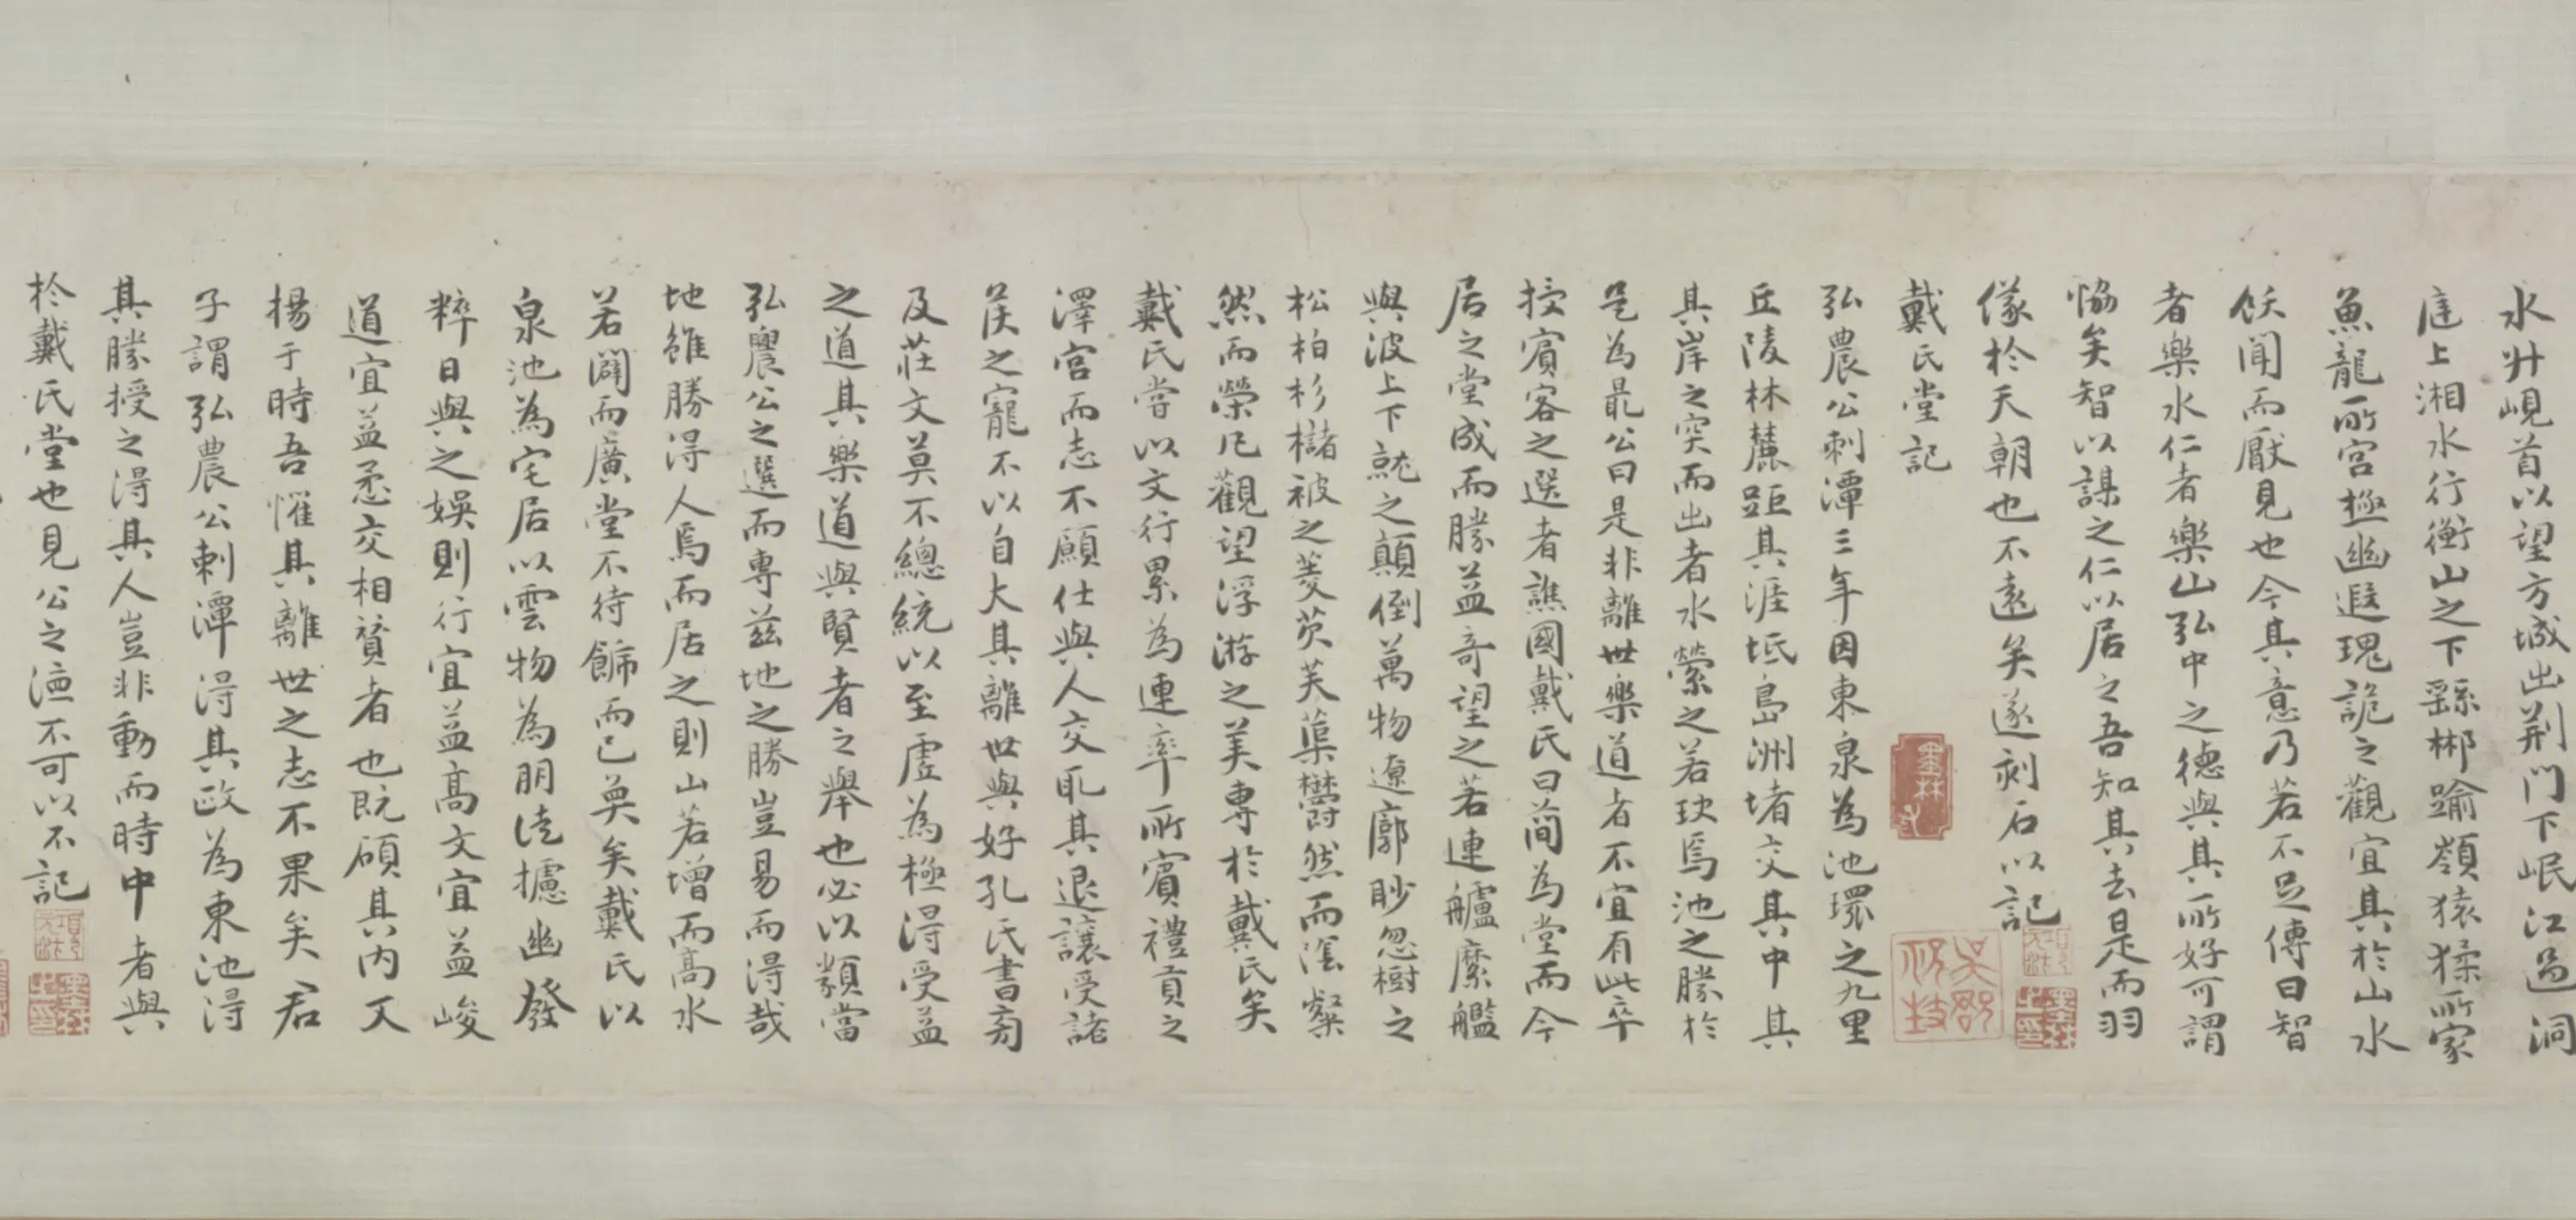 水升峴首以望方城出荆門下岷江過洞
庭上湘水行衡山之下繇郴踰嶺猿猱所家
魚龍所宮極幽遐瑰詭之觀宜其於山水
飫聞而厭見也今其意乃若不足傳曰智
者樂水仁者樂山弘中之德與其所好可謂
恊矣智以謀之仁以居之吾知其去是而羽
儀於天朝也不遠矣遂刻石以記
戴氏堂記
弘農公刺潭三年因東泉為池環之九里
丘陵林麓距其涯坻島洲堵交其中其
其岸之突而出者水縈之若玦焉池之勝於
是為最公曰是非離世樂道者不宜有此卒
授賓客之選者譙國戴氏曰簡為堂而今
居之堂成而勝益奇望之若連艫縻艦
與波上下就之顛倒萬物遼廓眇忽樹之
松柏杉櫧被之菱芡芙蕖欝然而陰粲
然而榮凡觀望浮游之美專於戴氏矣
戴氏嘗以文行累為連率所賓禮貢之
澤宮而志不願仕與人交取其退讓受諸
侯之寵不以自大其離世與好孔氏書旁
及莊文莫不總統以至虛為極得受益
之道其樂道與賢者之舉也必以類當
弘農公之選而專茲地之勝豈易而得哉
地雖勝得人焉而居之則山若增而高水
若闢而廣堂不待飾而已奐矣戴氏以
泉池為宅居以雲物為朋徒攄幽發
粹日與之娛則行宜益高文宜益峻
道宜益懋交相贊者也既碩其内又
揚于時吾懼其離世之志不果矣君
子謂弘農公刺潭得其政為東池得
其勝授之得其人豈非動而時中者與
於戴氏堂也見公之德不可以不記
墨林